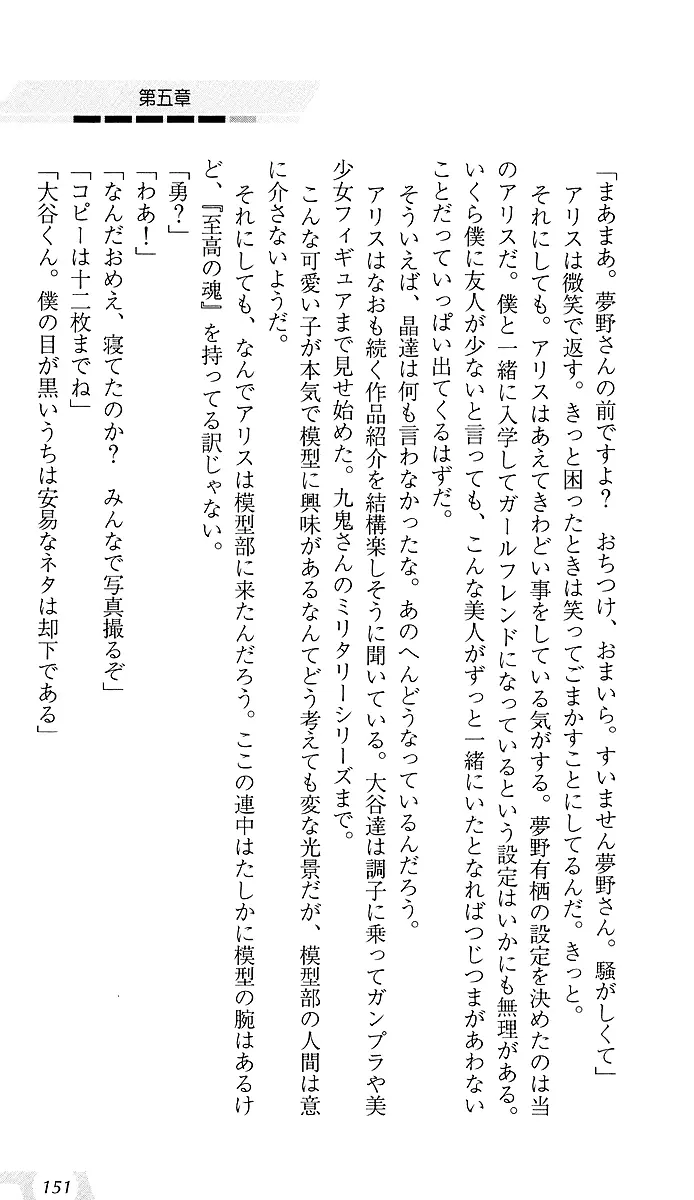 第五章
「まあまあ。夢野さんの前ですよ？　おちつけ、おまいら。すいません夢野さん。騒がしくて」
アリスは微笑で返す。きっと困ったときは笑ってごまかすことにしてるんだ。きっと。
それにしても。アリスはあえてきわどい事をしている気がする。夢野有栖の設定を決めたのは当
のアリスだ。僕と一緒に入学してガールフレンドになっているという設定はいかにも無理がある。
いくら僕に友人が少ないと言っても、こんな美人がずっと一緒にいたとなればつじつまがあわない
ことだっていっぱい出てくるはずだ。
そういえば、晶達は何も言わなかったな。あのへんどうなっているんだろう。
アリスはなおも続く作品紹介を結構楽しそうに聞いている。大谷達は調子に乗ってガンプラや美
少女フィギュアまで見せ始めた。九鬼さんのミリタリーシリーズまで。
こんな可愛い子が本気で模型に興味があるなんてどう考えても変な光景だが、模型部の人間は意
に介さないようだ。
それにしても、なんでアリスは模型部に来たんだろう。ここの連中はたしかに模型の腕はあるけ
ど、『至高の魂』を持ってる訳じゃない。
「勇？」
「わあ！」
「なんだおめえ、寝てたのか？　みんなで写真撮るぞ」
「コピーは十二枚までね」
「大谷くん。僕の目が黒いうちは安易なネタは却下である」
151